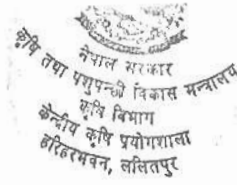 नेपाल सरकार
कृषि तथा पशुपन्छी विकास मन्त्रालय
कृषि विभाग
केन्द्रीय कृषि प्रयोगशाला
हरिहरभवन, ललितपुर